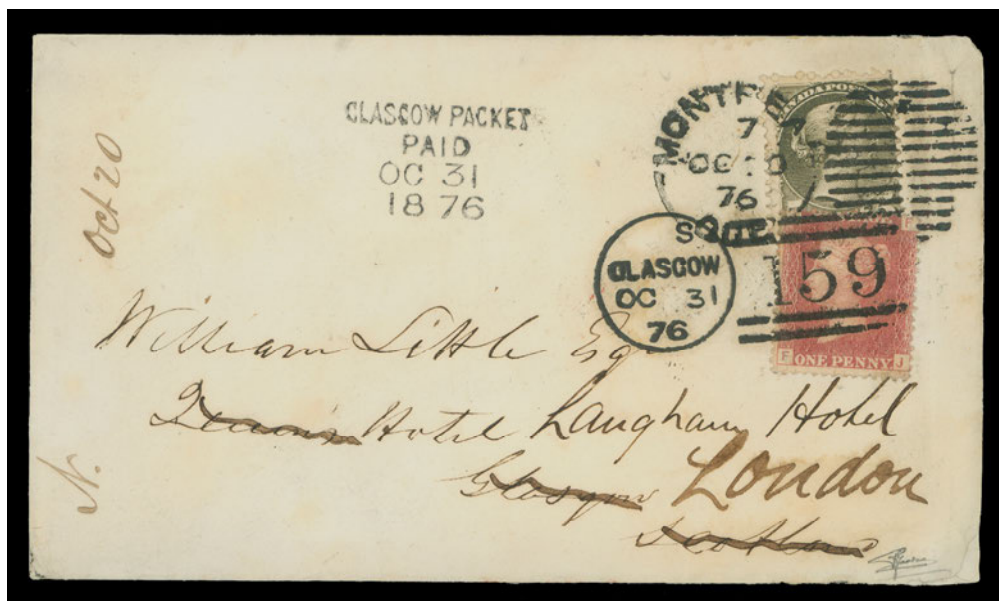 GLASGOW PACKET
PAID
OC 31
1876
MONTR
7
OC 20
76
QUE
CANADA POSTAGE
S
GLASGOW
OC 31
76
159
F
F ONE PENNY J
Oct 20
N.
William Little Esq
Hotel Langham Hotel
Glasgow London
Scotland